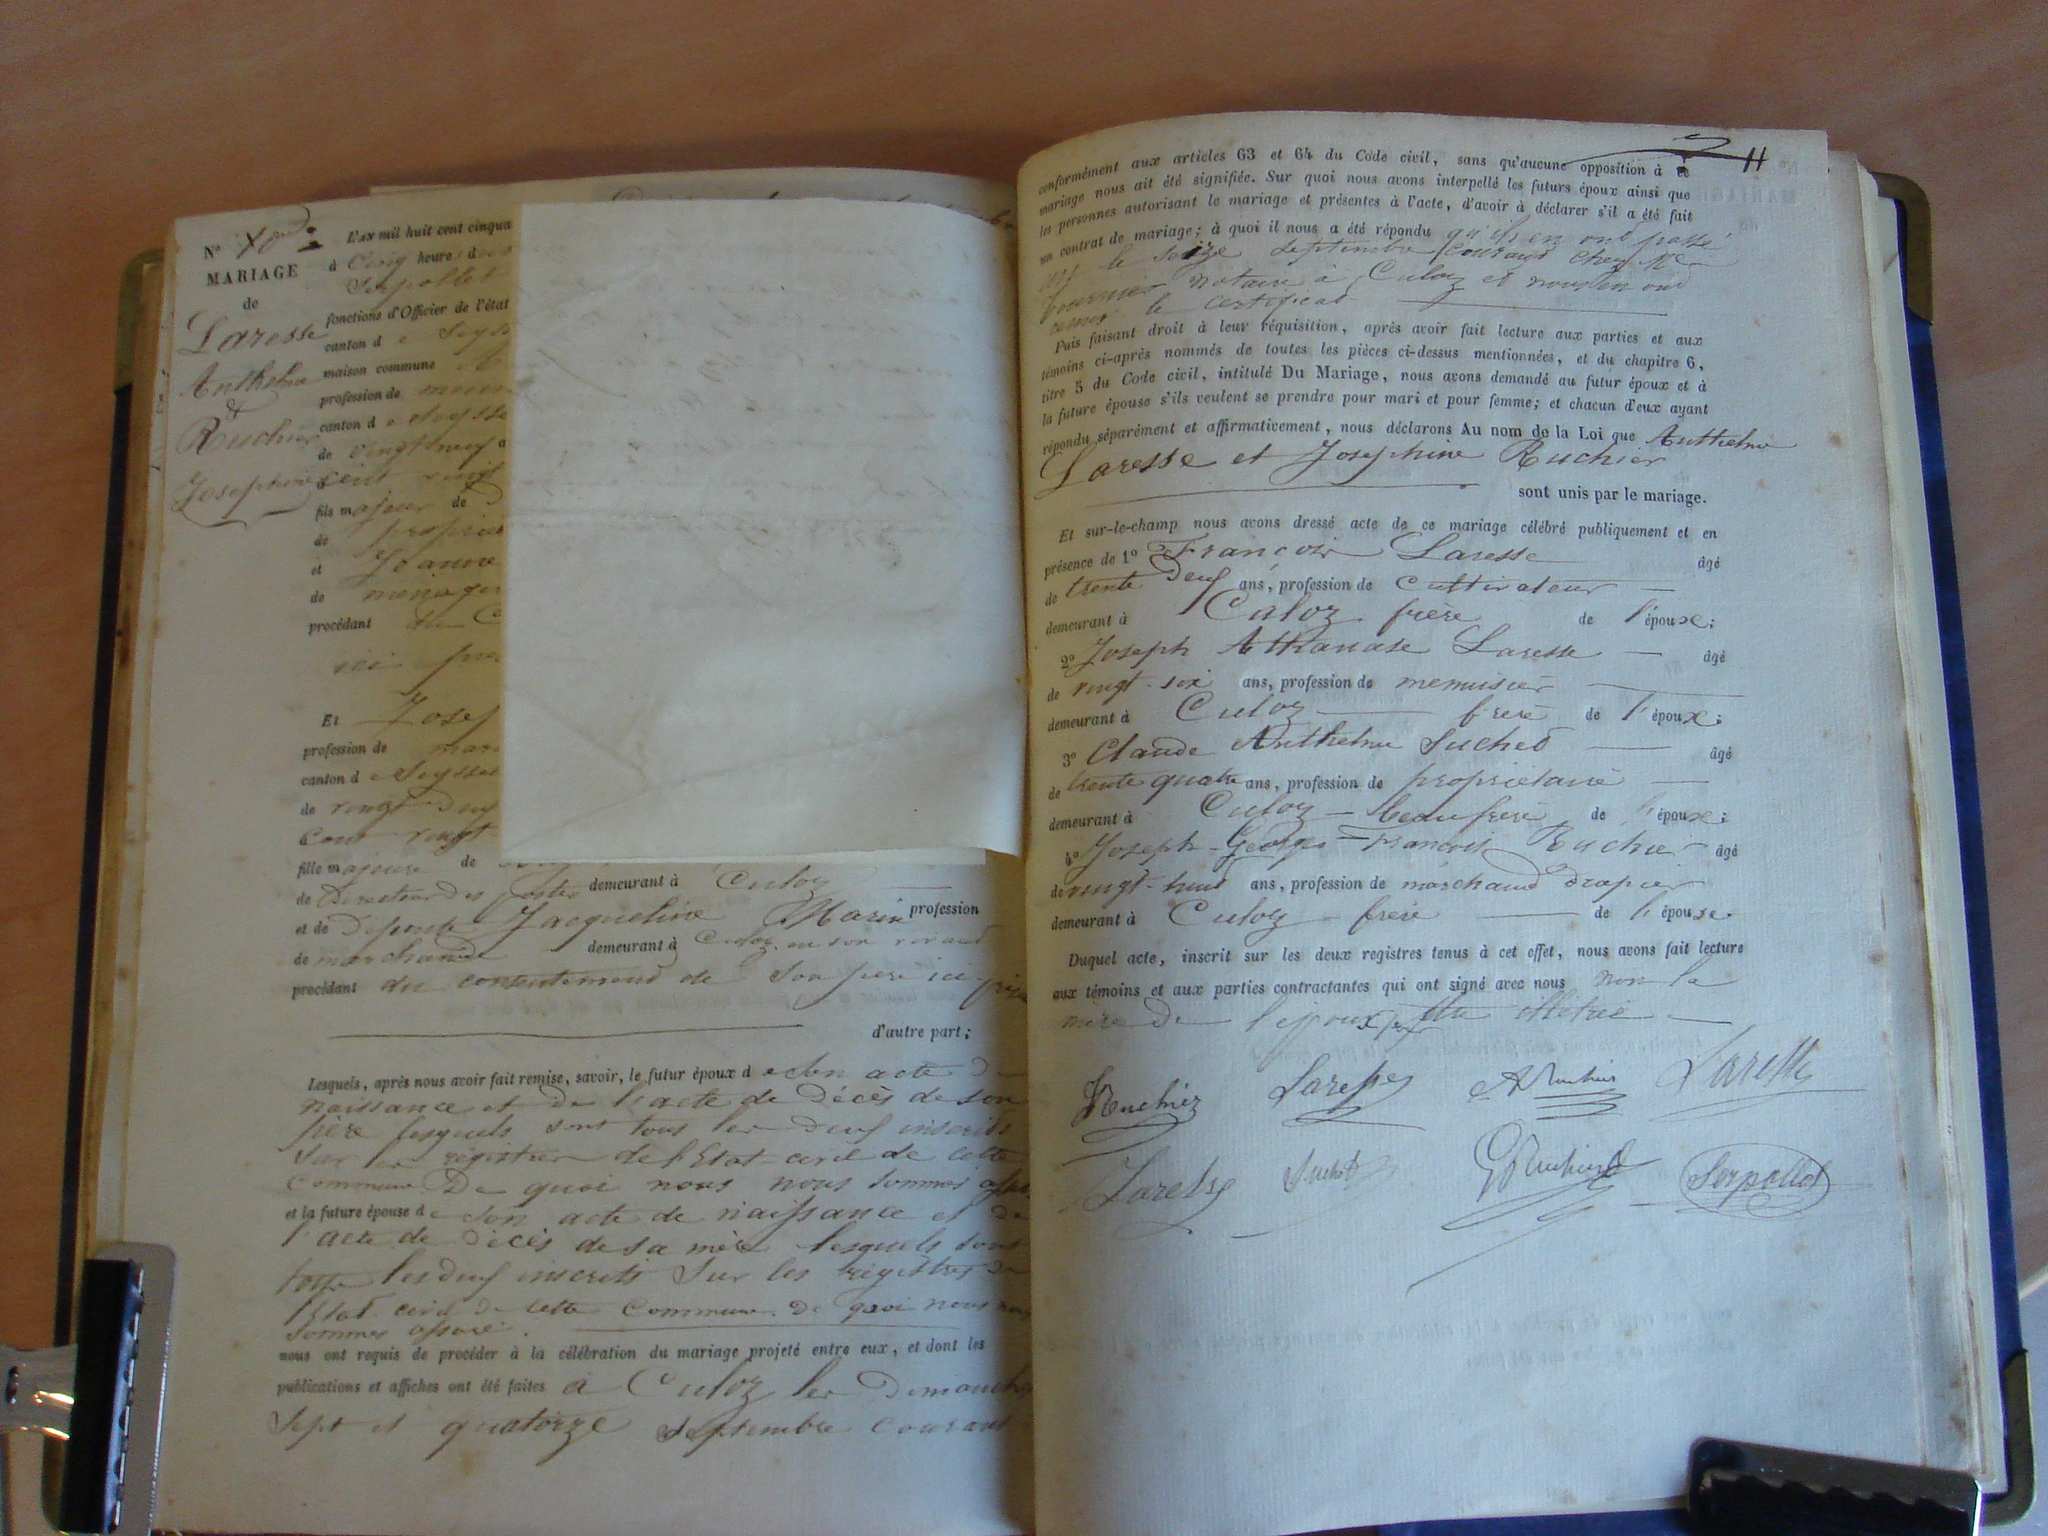 N° 10
MARIAGE
de
Laresse
Anthelme
&
Ruchier
Josephine
L'an mil huit cent cinqua
à Cinq heures d
Serpollet
fonctions d'Officier de l'état
canton d e Seyss
maison commune
profession de menu
canton d e Seysse
de vingt neuf a
cent vingt
fils majeur de
de propriét
et Jeanne
de ménagèr
procédant du C
ici pré
Et Josep
profession de mar
canton d e Seyssel
de vingt deux
Cent vingt
fille majeure de
de Directeur des postes demeurant à Culoz
et de défunte Jacqueline Marin profession
de marchande demeurant à Culoz en son vivant
procédant du consentement de son père ici
d'autre part;
Lesquels, après nous avoir fait remise, savoir, le futur époux d e son acte de
naissance et de l'acte de décès de son
père lesquels sont tous les deux inscrits
sur les registres de l'Etat-civil de cette
Commune. De quoi nous nous sommes
et la future épouse d e son acte de naissance et de
l'acte de décès de sa mère lesquels sont
tous les deux inscrits sur les registres de
l'Etat civil de cette Commune. De quoi nous nous
sommes assuré.
nous ont requis de procéder à la célébration du mariage projeté entre eux, et dont les
publications et affiches ont été faites à Culoz les Dimanches
Sept et quatorze septembre courant
11
conformément aux articles 63 et 64 du Code civil, sans qu'aucune opposition à ce
mariage nous ait été signifiée. Sur quoi nous avons interpellé les futurs époux ainsi que
les personnes autorisant le mariage et présentes à l'acte, d'avoir à déclarer s'il a été fait
un contrat de mariage; à quoi il nous a été répondu qu'ils en ont passé
le seize septembre courant chez Me
notaire à Culoz et nous en ont
le certificat
Puis faisant droit à leur réquisition, après avoir fait lecture aux parties et aux
témoins ci-après nommés de toutes les pièces ci-dessus mentionnées, et du chapitre 6,
titre 5 du Code civil, intitulé Du Mariage, nous avons demandé au futur époux et à
la future épouse s'ils veulent se prendre pour mari et pour femme; et chacun d'eux ayant
répondu séparément et affirmativement, nous déclarons Au nom de la Loi que Anthelme
Laresse et Josephine Ruchier
sont unis par le mariage.
Et sur-le-champ nous avons dressé acte de ce mariage célébré publiquement et en
présence de 1° François Laresse âgé
de trente deux ans, profession de cultivateur
demeurant à Culoz frère de l'époux;
2° Joseph Athanase Laresse âgé
de vingt-six ans, profession de menuisier
demeurant à Culoz frère de l'époux;
3° Claude Anthelme Suchet âgé
de trente quatre ans, profession de propriétaire
demeurant à Culoz beaufrère de l'époux;
4° Joseph-Georges-François Ruchier âgé
de vingt-huit ans, profession de marchand drapier
demeurant à Culoz frère de l'épouse
Duquel acte, inscrit sur les deux registres tenus à cet effet, nous avons fait lecture
aux témoins et aux parties contractantes qui ont signé avec nous non la
mère de l'époux illitrée
Ruchier Laresse Ruchier Laresse
Laresse Suchet Ruchier Serpollet